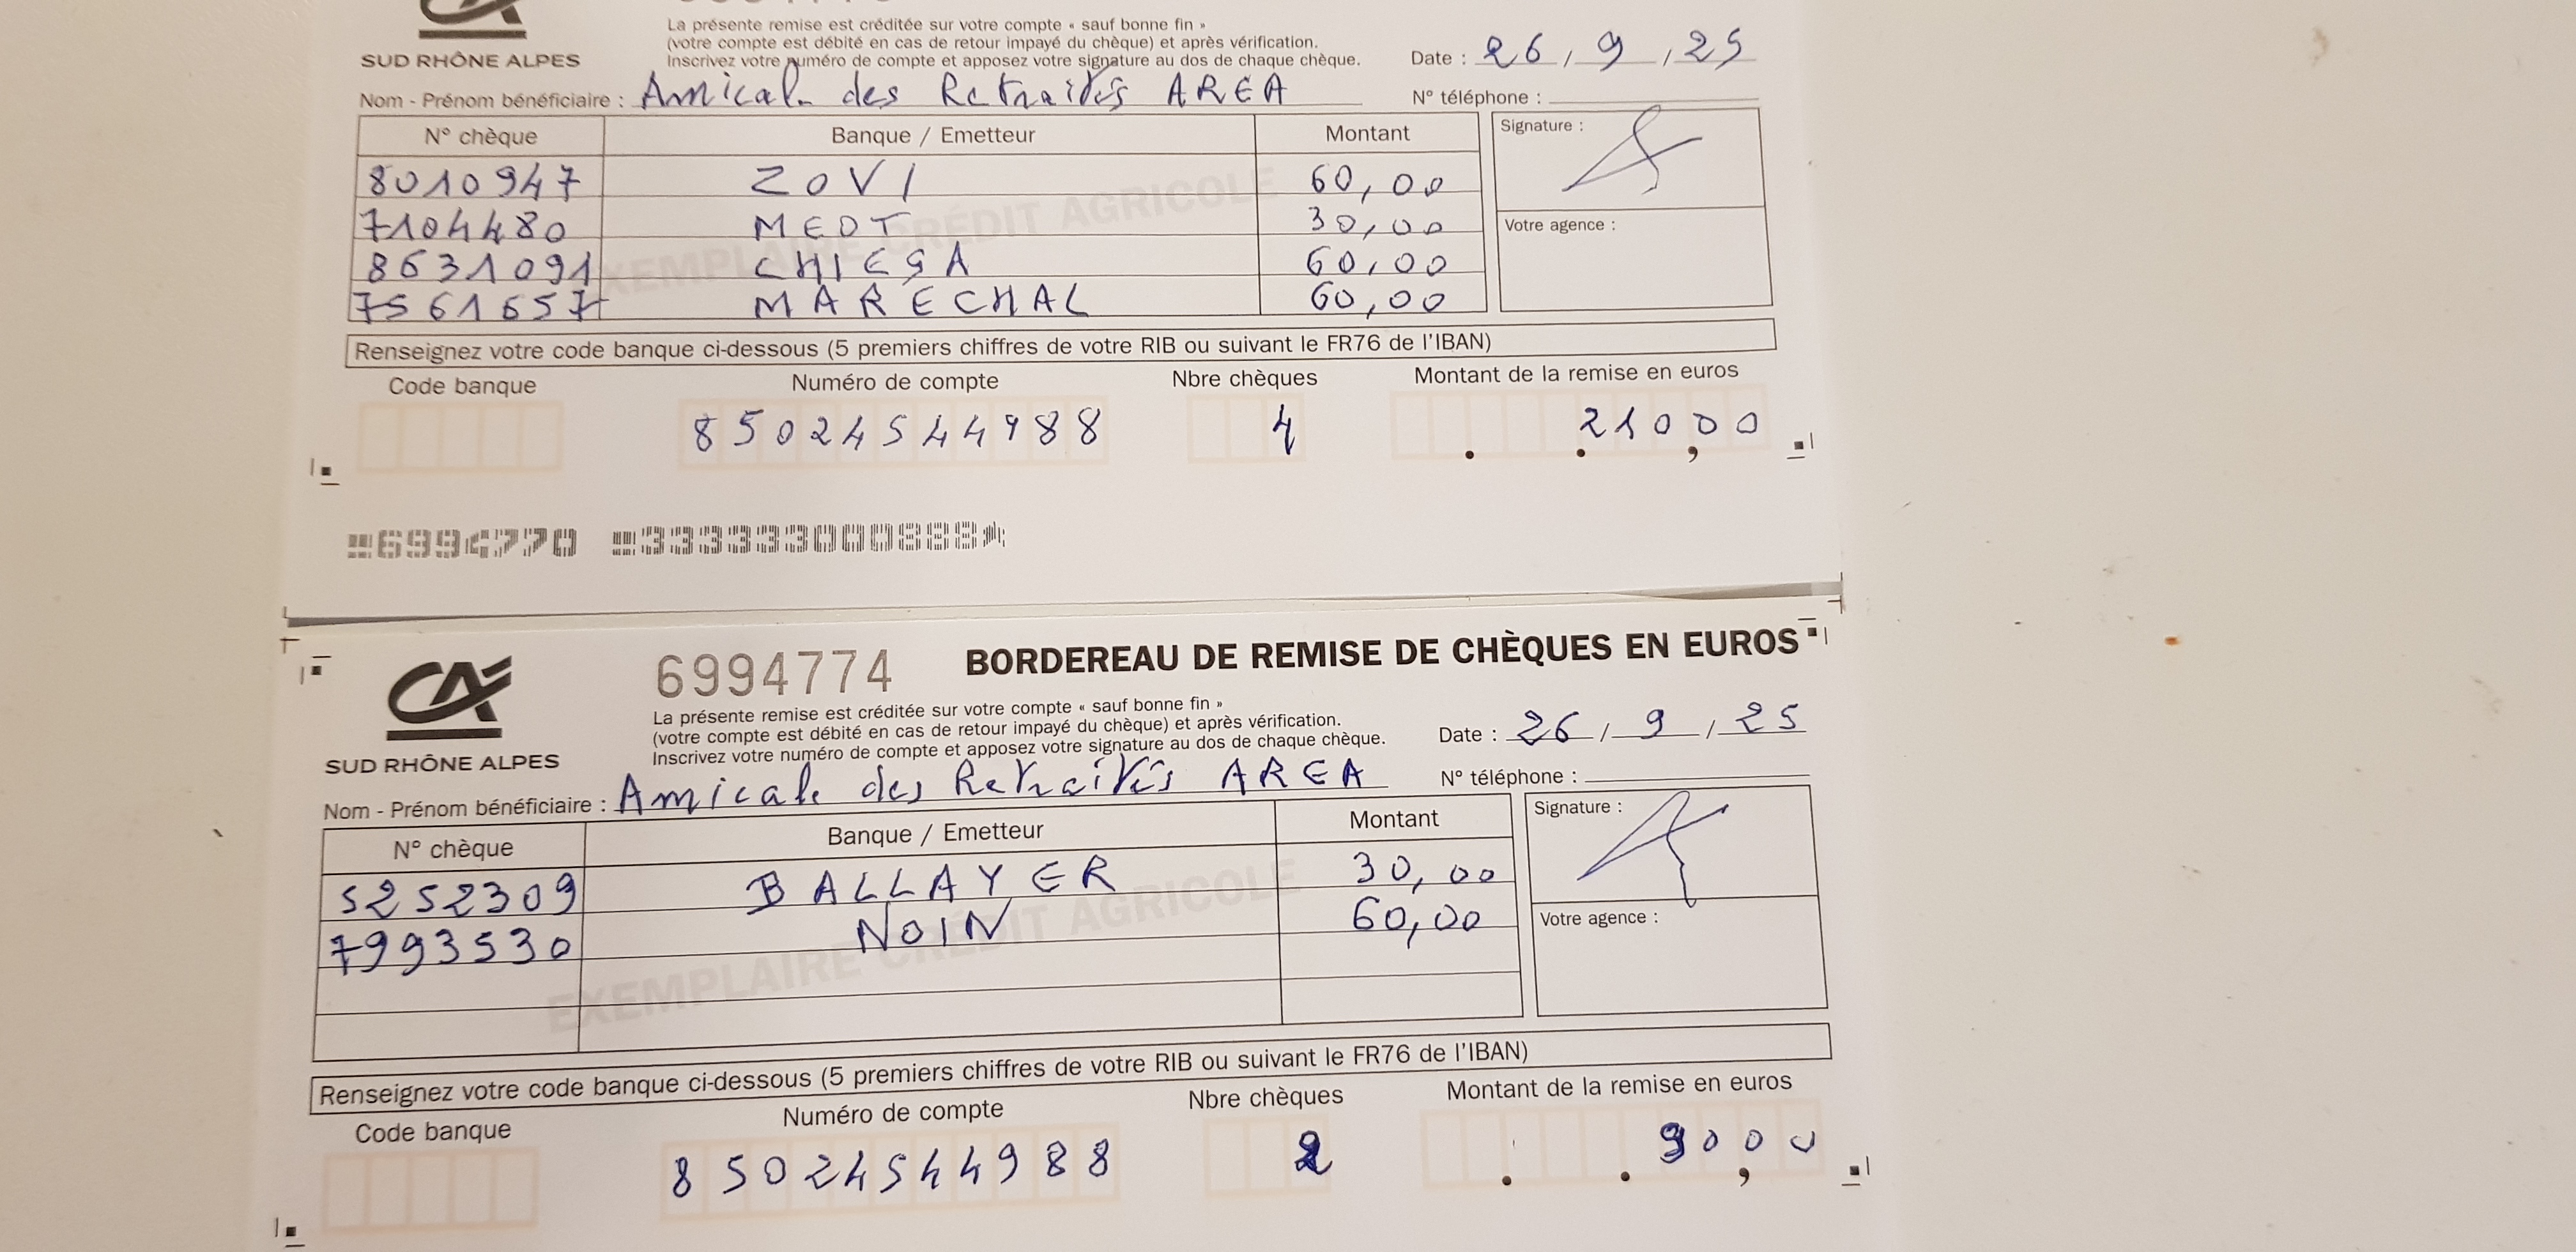 La présente remise est créditée sur votre compte « sauf bonne fin »
(votre compte est débité en cas de retour impayé du chèque) et après vérification.
Inscrivez votre numéro de compte et apposez votre signature au dos de chaque chèque.
SUD RHÔNE ALPES
Date : 26 / 9 / 25
Nom - Prénom bénéficiaire : Amicale des Retraités AREA
N° téléphone :
N° chèque Banque / Emetteur Montant
Signature :
8010947 ZOVI 60,00
7104480 MEOT 30,00
Votre agence :
8631091 CHIESA 60,00
7561657 MARECHAL 60,00
EXEMPLAIRE CRÉDIT AGRICOLE
Renseignez votre code banque ci-dessous (5 premiers chiffres de votre RIB ou suivant le FR76 de l'IBAN)
Code banque Numéro de compte Nbre chèques Montant de la remise en euros
85024544988 4 210,00
6994770 333333000888
CA
6994774 BORDEREAU DE REMISE DE CHÈQUES EN EUROS
La présente remise est créditée sur votre compte « sauf bonne fin »
(votre compte est débité en cas de retour impayé du chèque) et après vérification.
Inscrivez votre numéro de compte et apposez votre signature au dos de chaque chèque.
SUD RHÔNE ALPES
Date : 26 / 9 / 25
Nom - Prénom bénéficiaire : Amicale des Retraités AREA
N° téléphone :
N° chèque Banque / Emetteur Montant
Signature :
5252309 BALLAYER 30,00
7993530 NOIN 60,00
Votre agence :
EXEMPLAIRE CRÉDIT AGRICOLE
Renseignez votre code banque ci-dessous (5 premiers chiffres de votre RIB ou suivant le FR76 de l'IBAN)
Code banque Numéro de compte Nbre chèques Montant de la remise en euros
85024544988 2 90,00